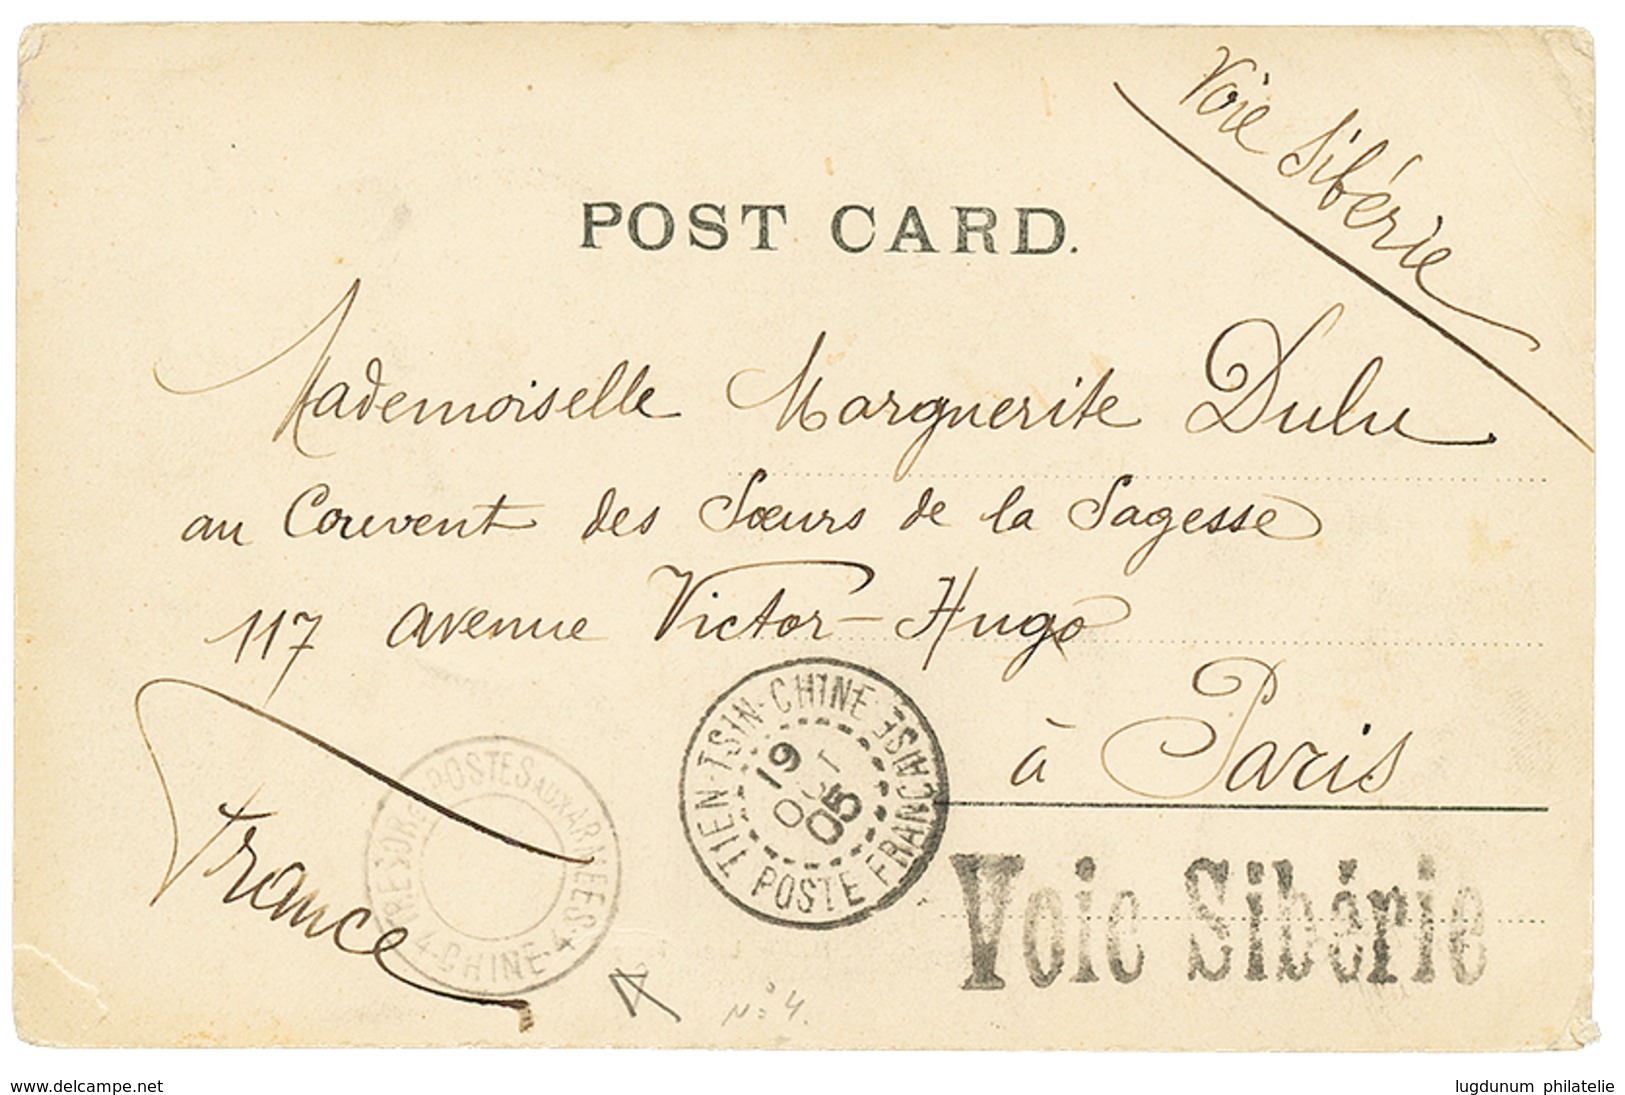 Voie Sibérie
POST CARD.
Mademoiselle Marguerite Dulu
au Couvent des Sœurs de la Sagesse
117 avenue Victor-Hugo
à Paris
France
TRESOR ET POSTES AUX ARMEES
4·CHINE·4
TIEN-TSIN-CHINE
19
OCT
05
POSTE FRANCAISE
Voie Sibérie
N° 4.
www.delcampe.net
lugdunum philatelie